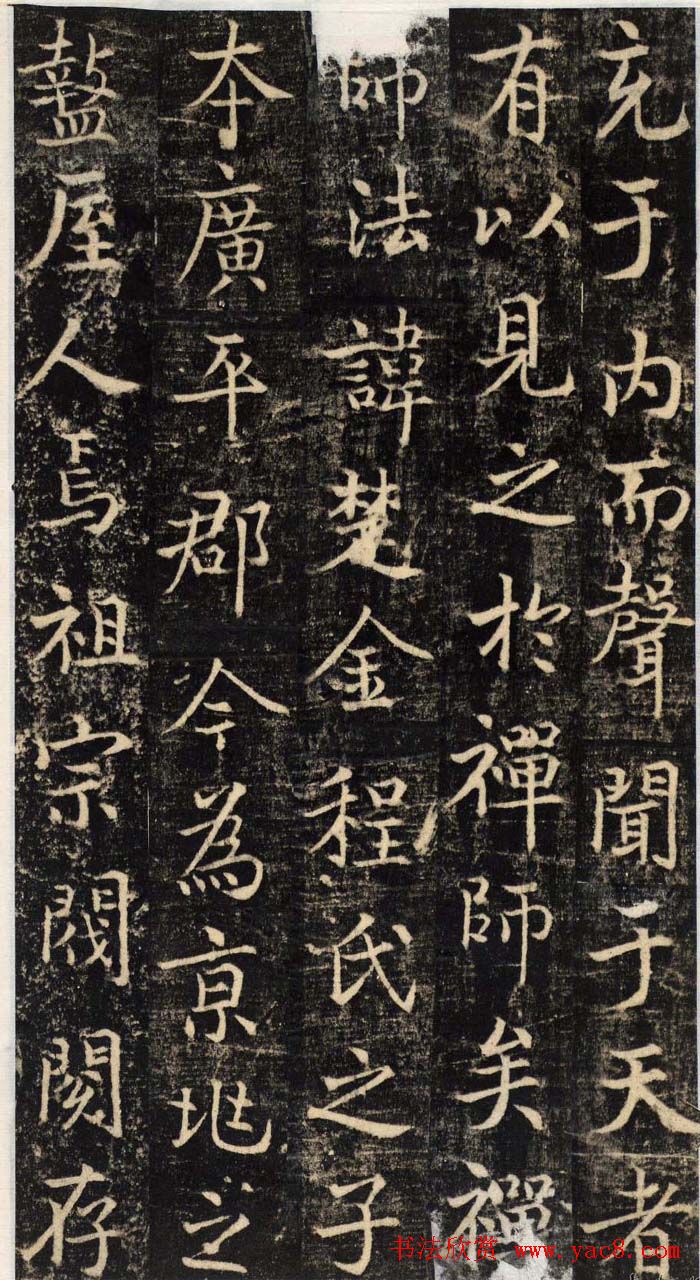 充于内而聲聞于天者
有以見之於禪師矣禪
師法諱楚金程氏之子
夲廣平郡今為亰兆之
盩厔人焉祖宗閥閱存
书法欣赏 www.yac8.com